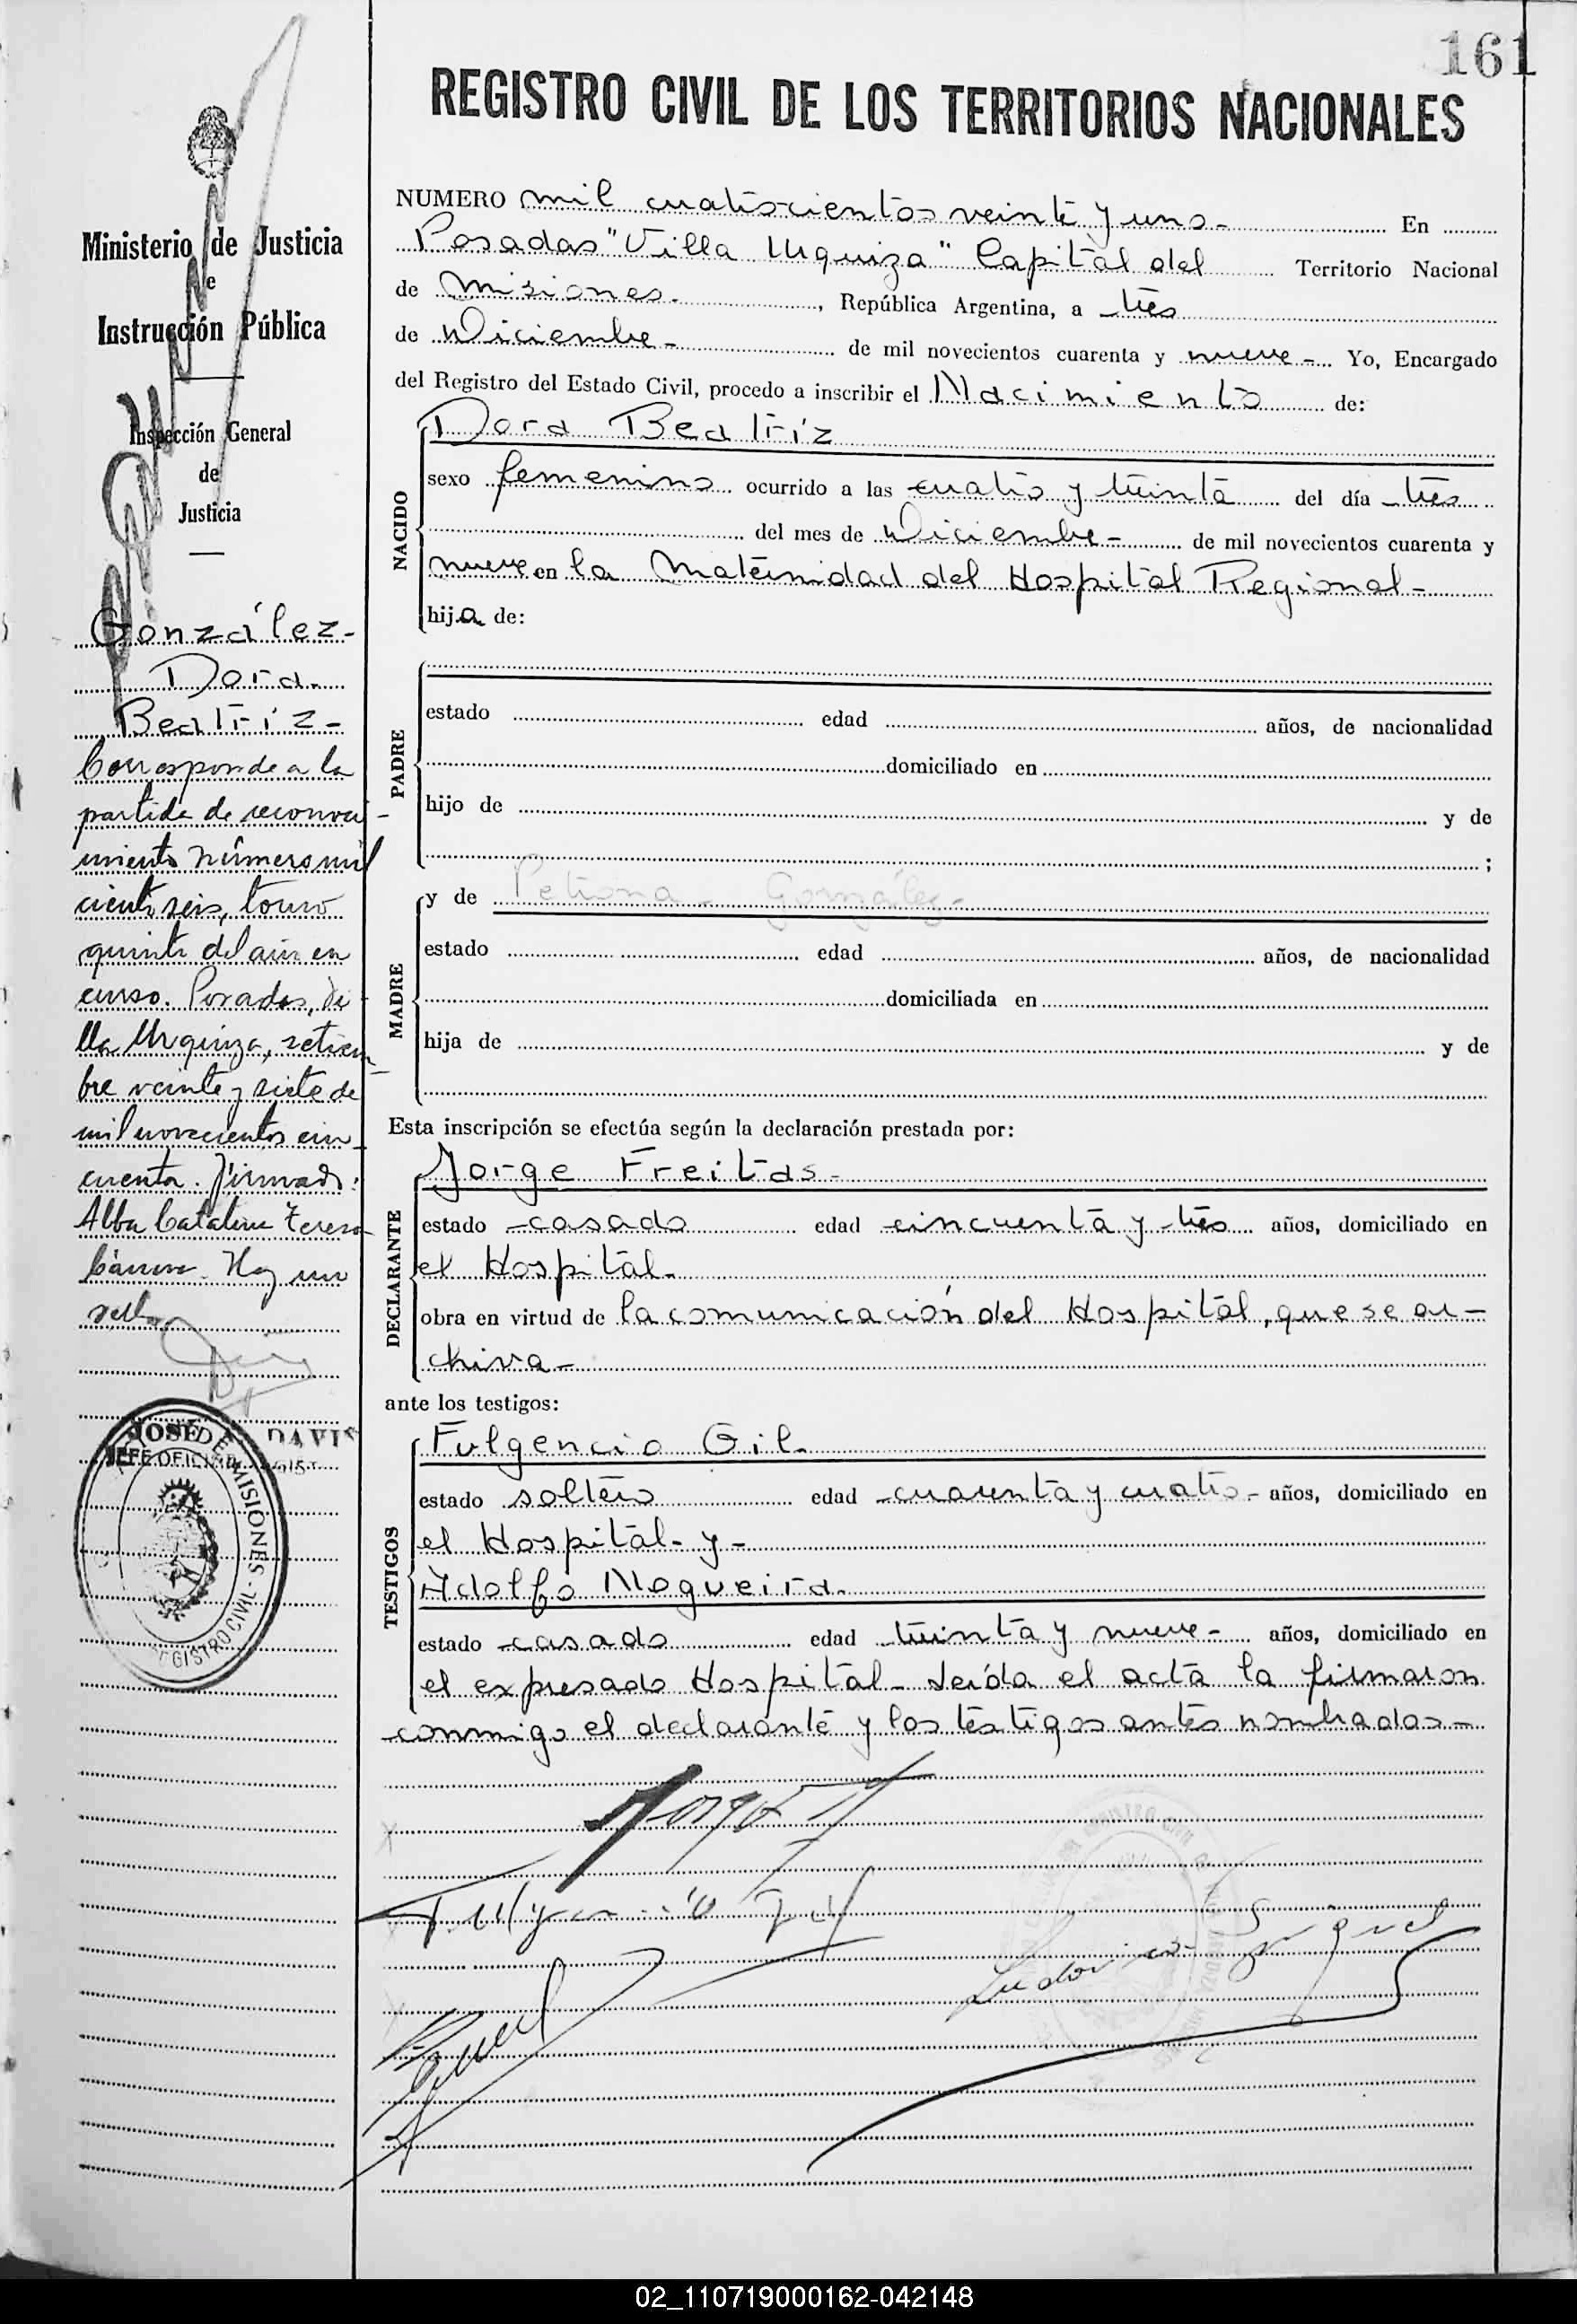 161
REGISTRO CIVIL DE LOS TERRITORIOS NACIONALES
Ministerio de Justicia
e
Instrucción Pública
Inspección General
de
Justicia
González-
Dora
Beatriz-
Corresponde a la
partida de reconoci-
miento número mil
ciento seis, tomo
quinto del año en
curso. Posadas, Vi-
lla Urquiza, setiem-
bre veinte y siete de
mil novecientos cin-
cuenta. Firmado:
Alba Catalina Teresa
Hay un
sello
JOSÉ DAVIS
JEFE OFICINA
DE MISIONES - REGISTRO CIVIL
NUMERO mil cuatrocientos veinte y uno- En
Posadas "Villa Urquiza" Capital del Territorio Nacional
de Misiones-, República Argentina, a tres
de Diciembre- de mil novecientos cuarenta y nueve- Yo, Encargado
del Registro del Estado Civil, procedo a inscribir el Nacimiento de:
NACIDO
Dora Beatriz
sexo femenino ocurrido a las cuatro y treinta del día tres
del mes de Diciembre- de mil novecientos cuarenta y
nueve en la Maternidad del Hospital Regional-
hija de:
PADRE
estado edad años, de nacionalidad
domiciliado en
hijo de y de
;
MADRE
y de Petrona González-
estado edad años, de nacionalidad
domiciliada en
hija de y de
Esta inscripción se efectúa según la declaración prestada por:
DECLARANTE
Jorge Freitas-
estado casado edad cincuenta y tres años, domiciliado en
el Hospital-
obra en virtud de la comunicación del Hospital, que se ar-
chiva-
ante los testigos:
TESTIGOS
Fulgencio Gil-
estado soltero edad cuarenta y cuatro- años, domiciliado en
el Hospital- y-
Adolfo Nogueira-
estado casado edad treinta y nueve- años, domiciliado en
el expresado Hospital- Leída el acta la firmaron
conmigo el declarante y los testigos antes nombrados-
Fulgencio Gil
02_110719000162-042148